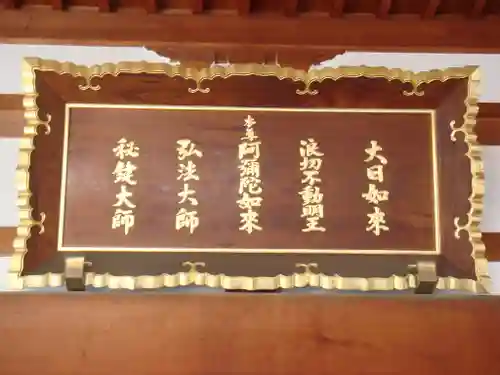 大日如来
浪切不動明王
本尊
阿彌陀如来
弘法大師
秘鍵大師